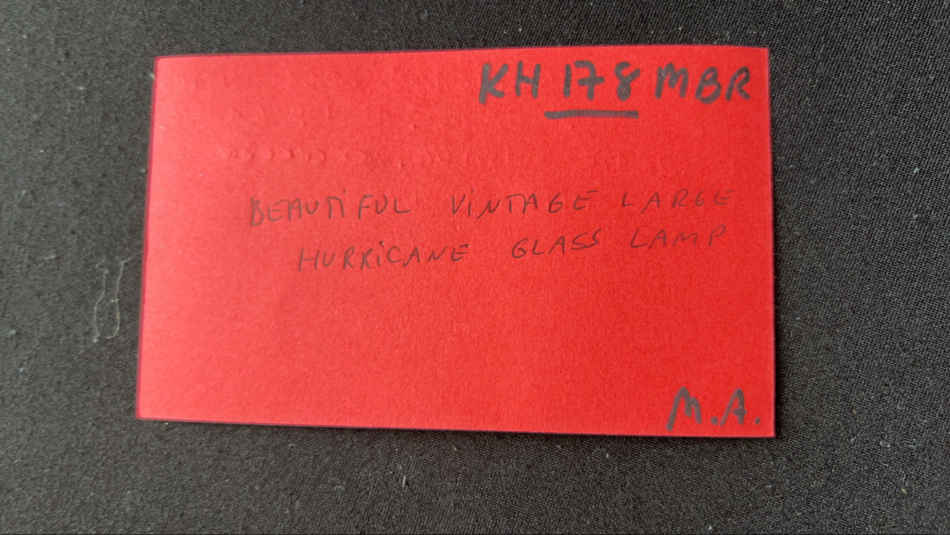 KH 178 MBR
BEAUTIFUL VINTAGE LARGE
HURRICANE GLASS LAMP
M.A.